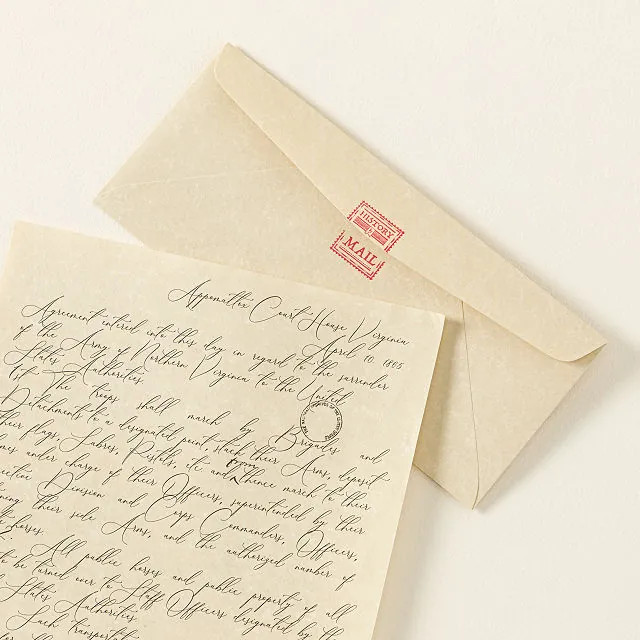 HISTORY
BY
MAIL
Appomattox Court House Virginia
April 10, 1865.
Agreement entered into this day in regard to the surrender
of the Army of Northern Virginia to the United
States Authorities.
1st The troops shall march by Brigades and
Detachments to a designated point, stack their Arms, deposit
their flags, Sabres, Pistols, etc. and from thence march to their
omes under charge of their Officers, superintended by their
ective Division and Corps Commanders, Officers,
ning their side Arms, and the authorized number of
horses.
All public horses and public property of all
to be turned over to Staff Officers designated by the
States Authorities.
Such transportati